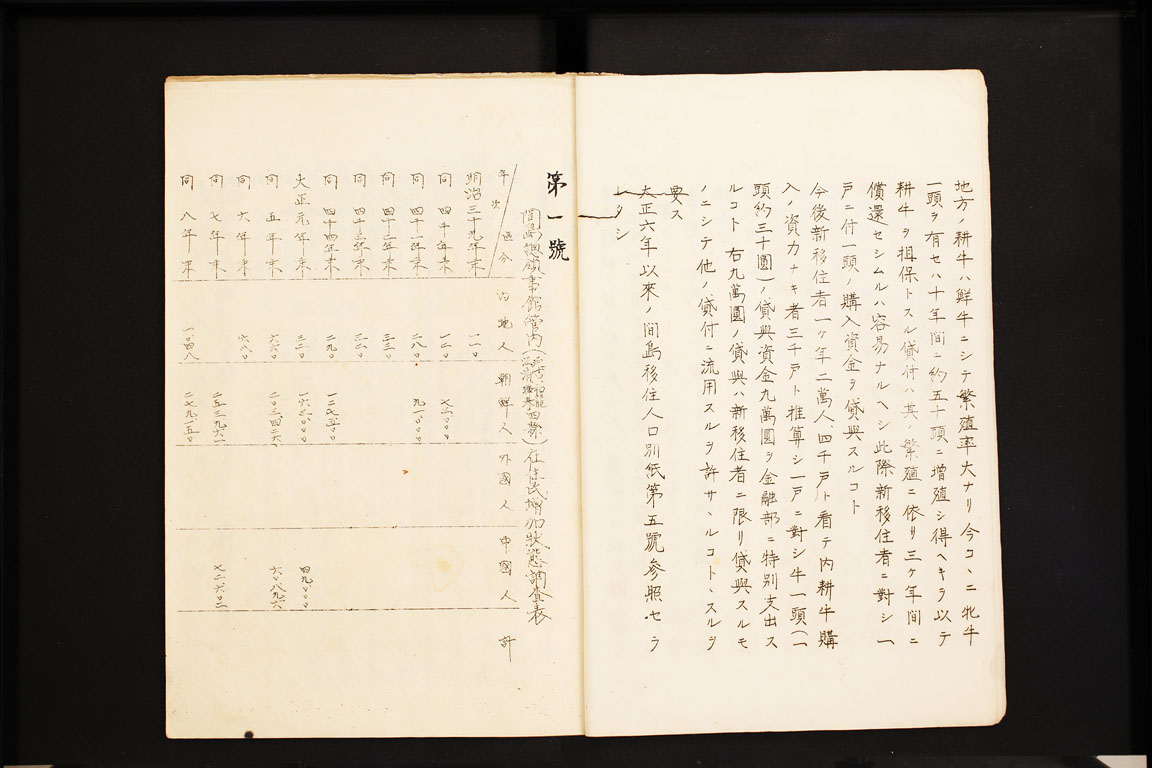 地方ノ耕牛ハ鮮牛ニシテ繁殖率大ナリ今コヽニ牝牛
一頭ヲ有セハ十年間ニ約五十頭ニ增殖シ得ヘキヲ以テ
耕牛ヲ担保トスル貸付ハ其ノ繁殖ニ依リ三ケ年間ニ
償還セシムルハ容易ナルヘシ此際新移住者ニ對シ一
戸ニ付一頭ノ購入資金ヲ貸與スルコト
今後新移住者一ケ年二萬人、四千戸ト看テ內耕牛購
入ノ資力ナキ者三千戸ト推算シ一戸ニ對シ牛一頭(一
頭約三十圓)ノ貸與資金九萬圓ヲ金融部ニ特別支出ス
ルコト 右九萬圓ノ貸與ハ新移住者ニ限リ貸與スルモ
ノニシテ他ノ貸付ニ流用スルヲ許サヽルコトヽスルヲ
要ス
大正六年以來ノ間島移住人口別紙第五號參照セラ
レタシ
第一號
間島總領事館管內(四縣)在住民增加狀態調査表
年次 區分 內地人 朝鮮人 外國人 中國人 計
明治三十九年末 一一〇
同 四十年末 一二〇 七二〇〇〇
同 四十一年末 二八〇 九一〇〇〇
同 四十二年末
同 四十三年末
同 四十四年末 二九〇 一二七五〇〇
大正元年末 三二〇 一六三〇〇〇 四九〇〇〇
同 五年末 六六〇 二〇三四二六 六〇八九六
同 六年末 六八〇
同 七年末 二五三九六一 七二六〇二
同 八年末 一〇四八 二七九一五〇